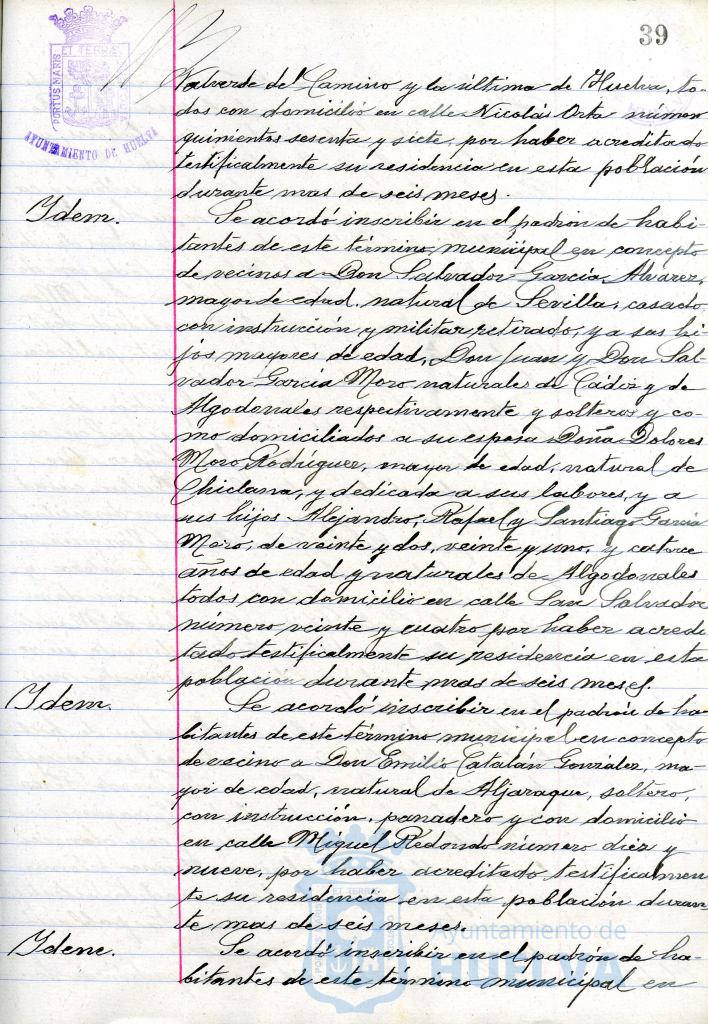 39
PORTUS MARIS
ET TERRÆ
AYUNTAMIENTO DE HUELVA
Valverde del Camino y la última de Huelva, to-
dos con domicilio en calle Nicolás Orta número
quinientos sesenta y siete, por haber acreditado
testificalmente su residencia en esta población
durante mas de seis meses.
Idem.
Se acordó inscribir en el padrón de habi-
tantes de este término municipal en concepto
de vecinos a Don Salvador García Alvarez,
mayor de edad, natural de Sevilla, casado,
con instrucción y militar retirado, y a sus hi-
jos mayores de edad, Don Juan y Don Sal-
vador García Moro naturales de Cádiz y de
Algodonales respectivamente y solteros y co-
mo domiciliados a su esposa Doña Dolores
Moro Rodríguez, mayor de edad, natural de
Chiclana, y dedicada a sus labores, y a
sus hijos Alejandro, Rafael y Santiago García
Moro, de veinte y dos, veinte y uno, y catorce
años de edad y naturales de Algodonales
todos con domicilio en calle San Salvador
número veinte y cuatro por haber acredi
tado testificalmente su residencia en esta
población durante mas de seis meses.
Idem.
Se acordó inscribir en el padrón de ha-
bitantes de este término municipal en concepto
de vecino a Don Emilio Catalán González, ma-
yor de edad, natural de Aljaraque, soltero,
con instrucción, panadero y con domicilio
en calle Miguel Redondo número diez y
nueve, por haber acreditado testificalmen
te su residencia en esta población duran-
te mas de seis meses.
Idem.
Se acordó inscribir en el padrón de ha-
bitantes de este término municipal en
Ayuntamiento de
HUELVA